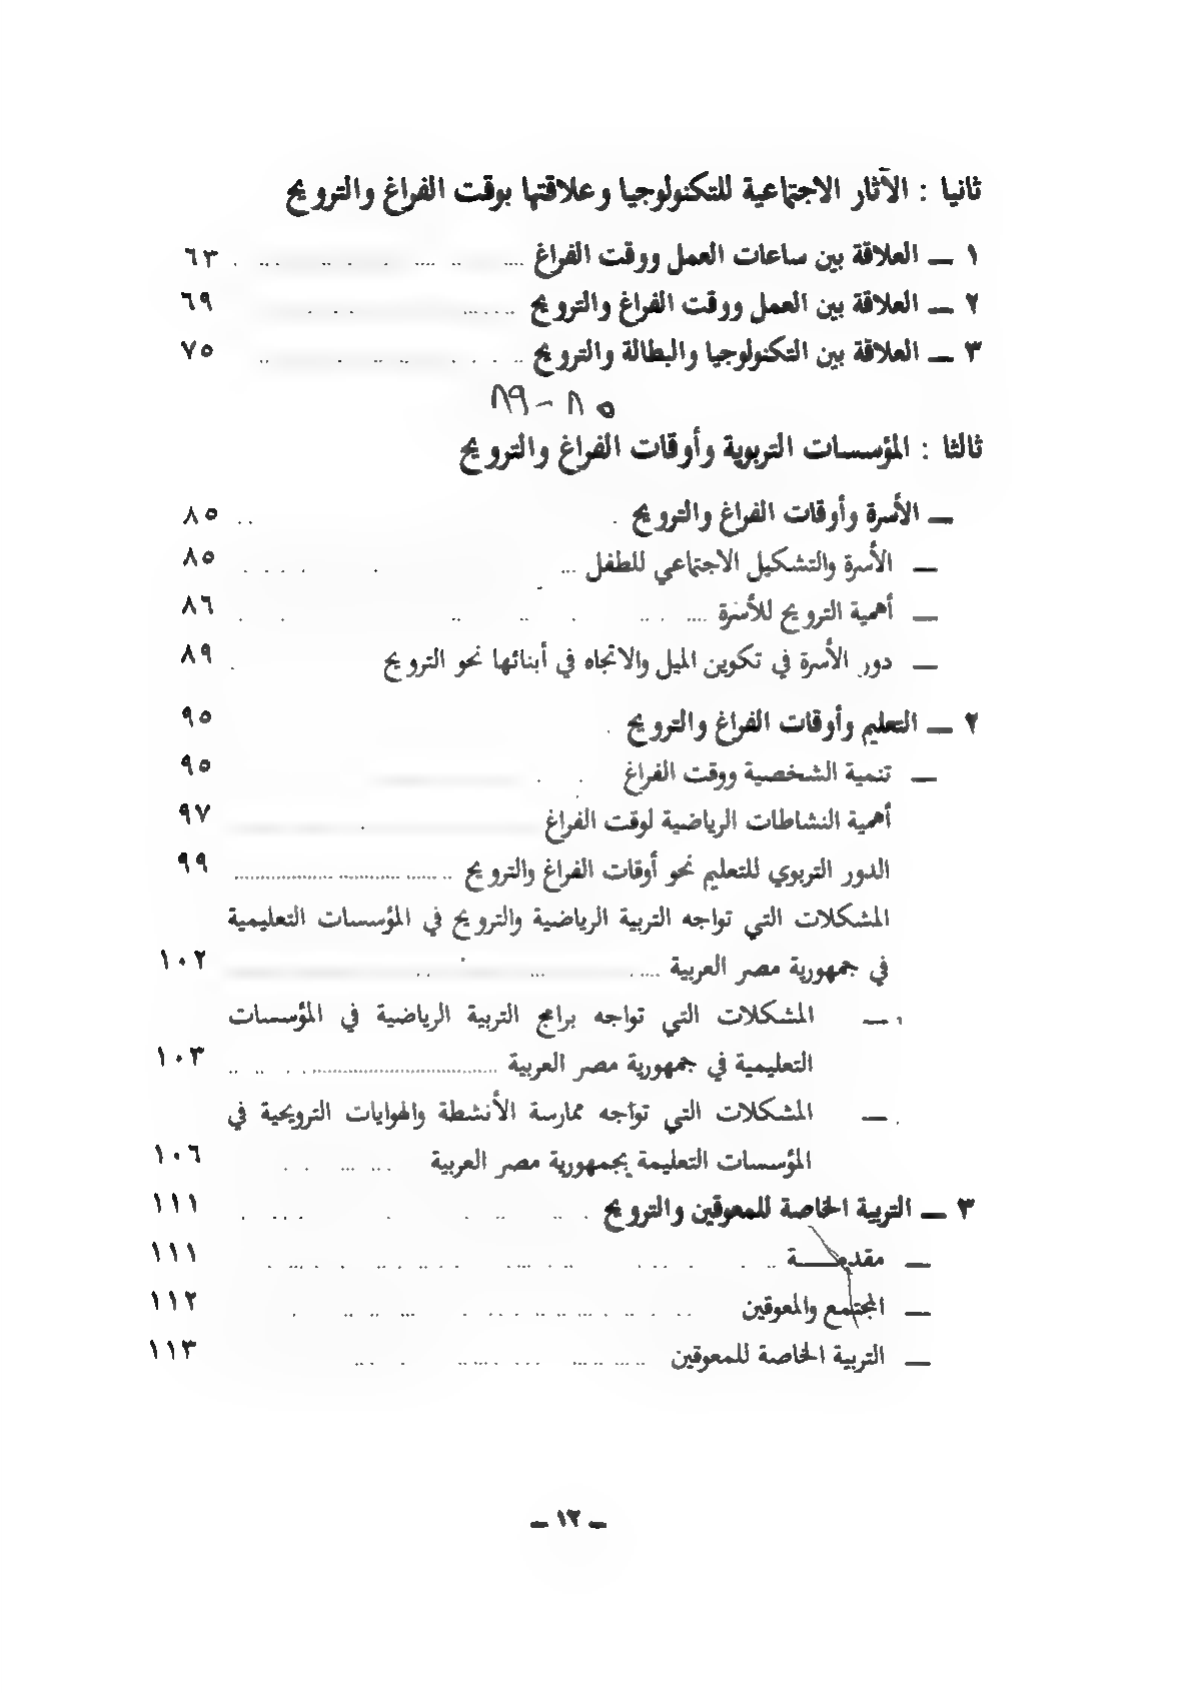 ثانيا : الآثار الاجتماعية للتكنولوجيا وعلاقتها بوقت الفراغ والترويح
١ ـ العلاقة بين ساعات العمل ووقت الفراغ ٦٣
٢ ـ العلاقة بين العمل ووقت الفراغ والترويح ٦٩
٣ ـ العلاقة بين التكنولوجيا والبطالة والترويح ٧٥
٨٥ - ٨٩
ثالثا : المؤسسات التربوية وأوقات الفراغ والترويح
ـ الأسرة وأوقات الفراغ والترويح ٨٥
ـ الأسرة والتشكيل الاجتماعي للطفل ٨٥
ـ أهمية الترويح للأسرة ٨٦
ـ دور الأسرة في تكوين الميل والاتجاه في أبنائها نحو الترويح ٨٩
٢ ـ التعليم وأوقات الفراغ والترويح ٩٥
ـ تنمية الشخصية ووقت الفراغ ٩٥
أهمية النشاطات الرياضية لوقت الفراغ ٩٧
الدور التربوي للتعليم نحو أوقات الفراغ والترويح ٩٩
المشكلات التي تواجه التربية الرياضية والترويح في المؤسسات التعليمية
في جمهورية مصر العربية ١٠٢
ـ المشكلات التي تواجه برامج التربية الرياضية في المؤسسات
التعليمية في جمهورية مصر العربية ١٠٣
ـ المشكلات التي تواجه ممارسة الأنشطة والهوايات الترويحية في
المؤسسات التعليمة بجمهورية مصر العربية ١٠٦
٣ ـ التربية الخاصة للمعوقين والترويح ١١١
ـ مقدمـــة ١١١
ـ المجتمع والمعوقين ١١٢
ـ التربية الخاصة للمعوقين ١١٣
ـ ١٢ ـ